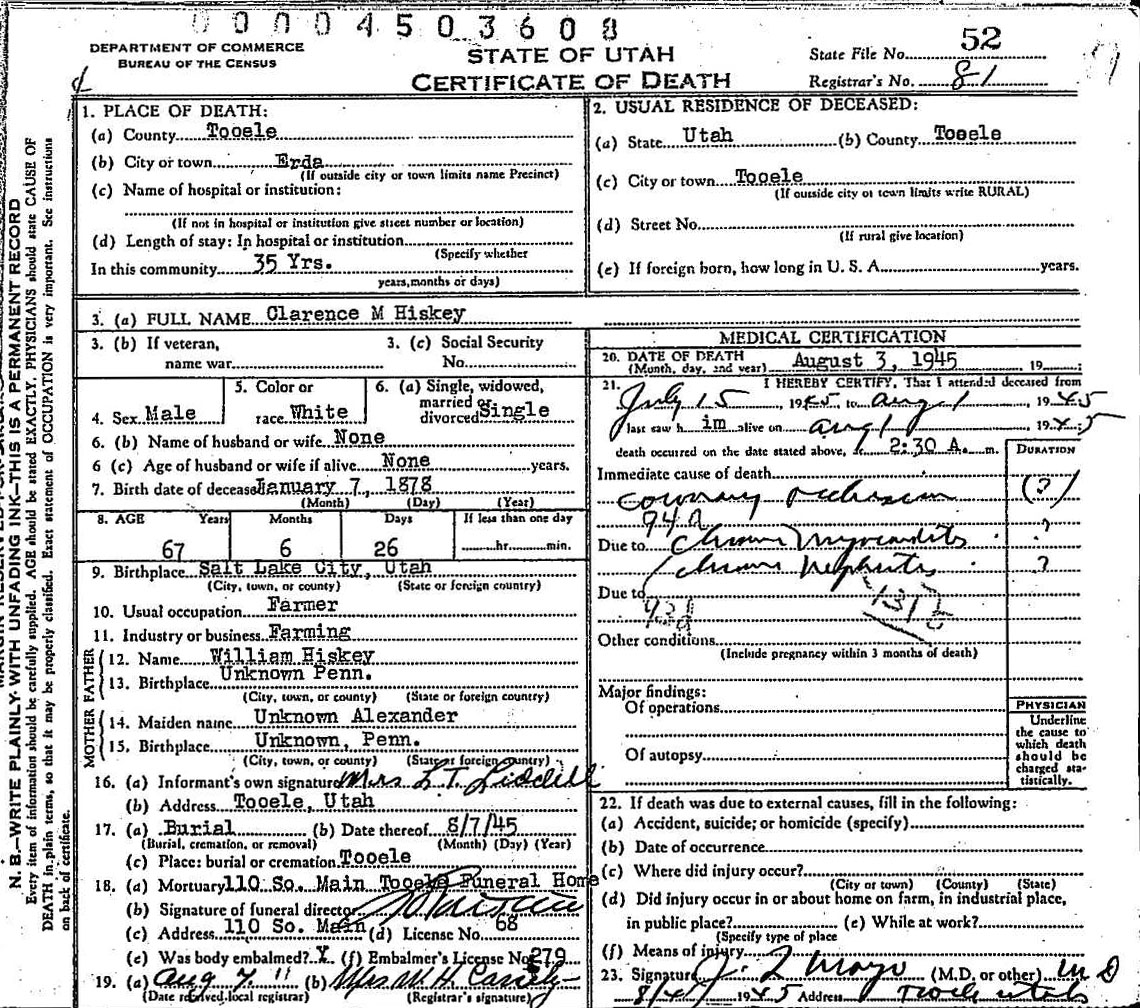 0 0 0 0 4 5 0 3 6 0 8
DEPARTMENT OF COMMERCE
BUREAU OF THE CENSUS
STATE OF UTAH
CERTIFICATE OF DEATH
State File No. 52
Registrar's No. 81
N. B.—WRITE PLAINLY WITH UNFADING INK—THIS IS A PERMANENT RECORD
Every item of information should be carefully supplied. AGE should be stated EXACTLY. PHYSICIANS should state CAUSE OF
DEATH in plain terms, so that it may be properly classified. Exact statement of OCCUPATION is very important. See instructions
on back of certificate.
1. PLACE OF DEATH:
(a) County Tooele
(b) City or town Erda
(If outside city or town limits name Precinct)
(c) Name of hospital or institution:
(If not in hospital or institution give street number or location)
(d) Length of stay: In hospital or institution
(Specify whether
In this community 35 Yrs.
years, months or days)
2. USUAL RESIDENCE OF DECEASED:
(a) State Utah (b) County Tooele
(c) City or town Tooele
(If outside city or town limits write RURAL)
(d) Street No.
(If rural give location)
(e) If foreign born, how long in U. S. A. years.
3. (a) FULL NAME Clarence M Hiskey
3. (b) If veteran,
name war
3. (c) Social Security
No.
4. Sex Male
5. Color or
race White
6. (a) Single, widowed,
married or
divorced Single
6. (b) Name of husband or wife None
6 (c) Age of husband or wife if alive None years.
7. Birth date of deceased January 7, 1878
(Month) (Day) (Year)
8. AGE Years Months Days If less than one day
67 6 26 hr. min.
9. Birthplace Salt Lake City, Utah
(City, town, or county) (State or foreign country)
10. Usual occupation Farmer
11. Industry or business Farming
FATHER
12. Name William Hiskey
13. Birthplace Unknown Penn.
(City, town, or county) (State or foreign country)
MOTHER
14. Maiden name Unknown Alexander
15. Birthplace Unknown, Penn.
(City, town, or county) (State or foreign country)
16. (a) Informant's own signature Mrs L.T. Liddell
(b) Address Tooele, Utah
17. (a) Burial (b) Date thereof 8/7/45
(Burial, cremation, or removal) (Month) (Day) (Year)
(c) Place: burial or cremation Tooele
18. (a) Mortuary 110 So. Main Tooele Funeral Home
(b) Signature of funeral director
(c) Address 110 So. Main (d) License No. 68
(e) Was body embalmed? X (f) Embalmer's License No. 279
19. (a) Aug 7 (b) Mrs W. H. Cassity
(Date received local registrar) (Registrar's signature)
MEDICAL CERTIFICATION
20. DATE OF DEATH
(Month, day, and year) August 3, 1945 19
21. I HEREBY CERTIFY, That I attended deceased from
July 15, 1945 to Aug 1, 1945
last saw h im alive on Aug 1 1945
death occurred on the date stated above, 2:30 A. m.
DURATION
Immediate cause of death
Coronary occlusion (?)
94 a
Due to Chronic Myocarditis ?
Chronic Nephritis ?
Due to
Other conditions
(Include pregnancy within 3 months of death)
Major findings:
Of operations
Of autopsy
PHYSICIAN
Underline
the cause to
which death
should be
charged sta-
tistically.
22. If death was due to external causes, fill in the following:
(a) Accident, suicide; or homicide (specify)
(b) Date of occurrence
(c) Where did injury occur?
(City or town) (County) (State)
(d) Did injury occur in or about home on farm, in industrial place,
in public place? (e) While at work?
(Specify type of place
(f) Means of injury
23. Signature J. L Mayo (M.D. or other) M D
8/4/ 1945 Address Tooele Utah